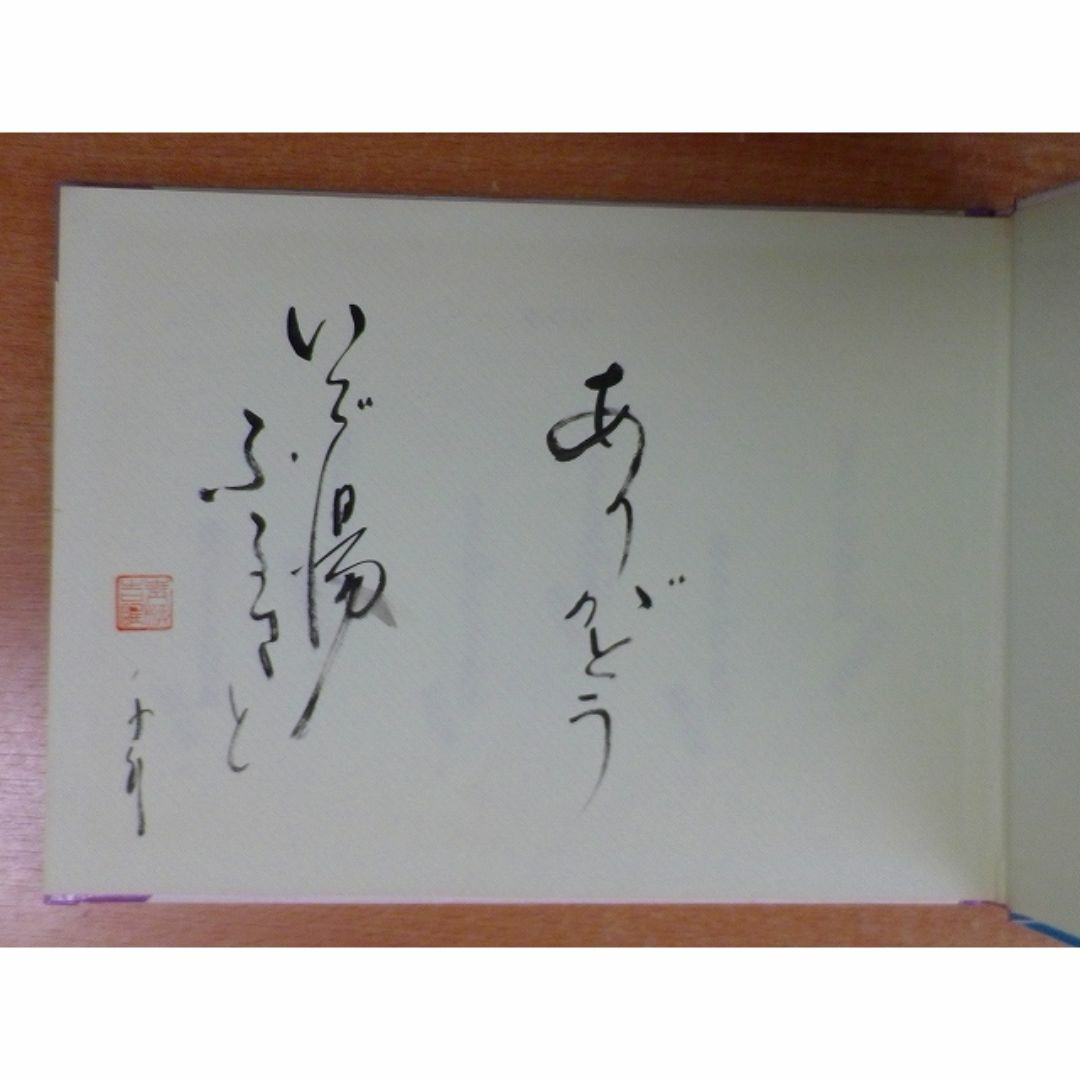 ありがとう
いで湯
ふるさと